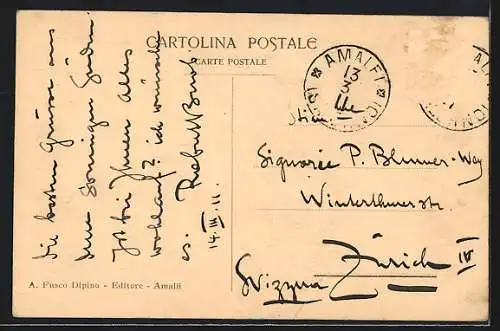 CARTOLINA POSTALE
CARTE POSTALE
AMALFI
13
3
11
Die besten Grüsse aus
dem Sonnigen Süden.
Ist bei Ihnen Alles
wohlauf? ich wünsche
es.
14. III. 11.
Signorée P. Blumer-Weg
Winterthurerstr.
Zürich IV
Svizzera
A. Fusco Dipino - Editore - Amalfi